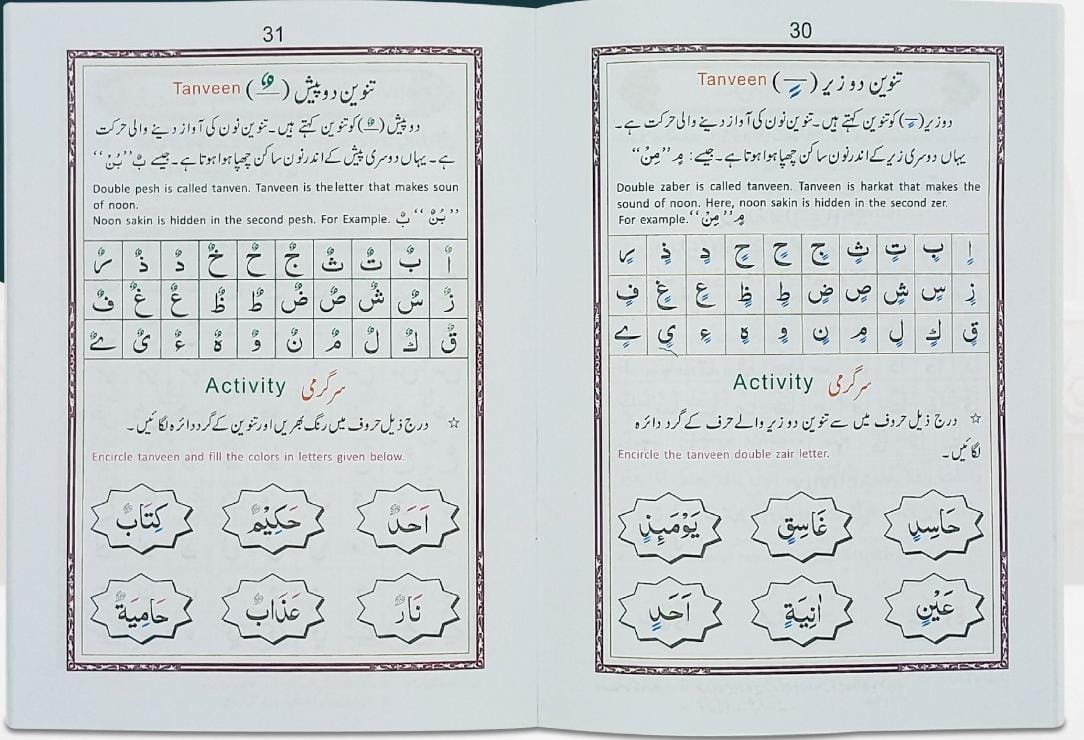 30
تنوین دو زیر (ــٍـ) Tanveen
دوزیر (ــٍـ) کو تنوین کہتے ہیں۔ تنوین نون کی آواز دینے والی حرکت ہے۔
یہاں دوسری زیر کے اندر نون ساکن چھپا ہوا ہوتا ہے۔ جیسے: مٍ ”مِنْ“
Double zaber is called tanveen. Tanveen is harkat that makes the
sound of noon. Here, noon sakin is hidden in the second zer.
For example. ”مِنْ“ مٍ
اٍ بٍ تٍ ثٍ جٍ حٍ خٍ دٍ ذٍ رٍ
زٍ سٍ شٍ صٍ ضٍ طٍ ظٍ عٍ غٍ فٍ
قٍ كٍ لٍ مٍ نٍ وٍ هٍ ءٍ یٍ ےٍ
Activity سرگرمی
☆ درج ذیل حروف میں سے تنوین دو زیر والے حرف کے گرد دائرہ
لگائیں۔
Encircle the tanveen double zair letter.
حَاسِدٍ غَاسِقٍ يَوْمَئِذٍ
عَيْنٍ اٰنِيَةٍ اَحَدٍ
31
تنوین دو پیش (ــٌـ) Tanveen
دو پیش (ــٌـ) کو تنوین کہتے ہیں۔ تنوین نون کی آواز دینے والی حرکت
ہے۔ یہاں دوسری پیش کے اندر نون ساکن چھپا ہوا ہوتا ہے۔ جیسے بٌ ”بُنْ“
Double pesh is called tanven. Tanveen is the letter that makes soun
of noon.
Noon sakin is hidden in the second pesh. For Example. بٌ ”بُنْ“
اٌ بٌ تٌ ثٌ جٌ حٌ خٌ دٌ ذٌ رٌ
زٌ سٌ شٌ صٌ ضٌ طٌ ظٌ عٌ غٌ فٌ
قٌ كٌ لٌ مٌ نٌ وٌ هٌ ءٌ یٌ ےٌ
Activity سرگرمی
☆ درج ذیل حروف میں رنگ بھریں اور تنوین کے گرد دائرہ لگائیں۔
Encircle tanveen and fill the colors in letters given below.
اَحَدٌ حَكِيْمٌ كِتَابٌ
نَارٌ عَذَابٌ حَامِيَةٌ